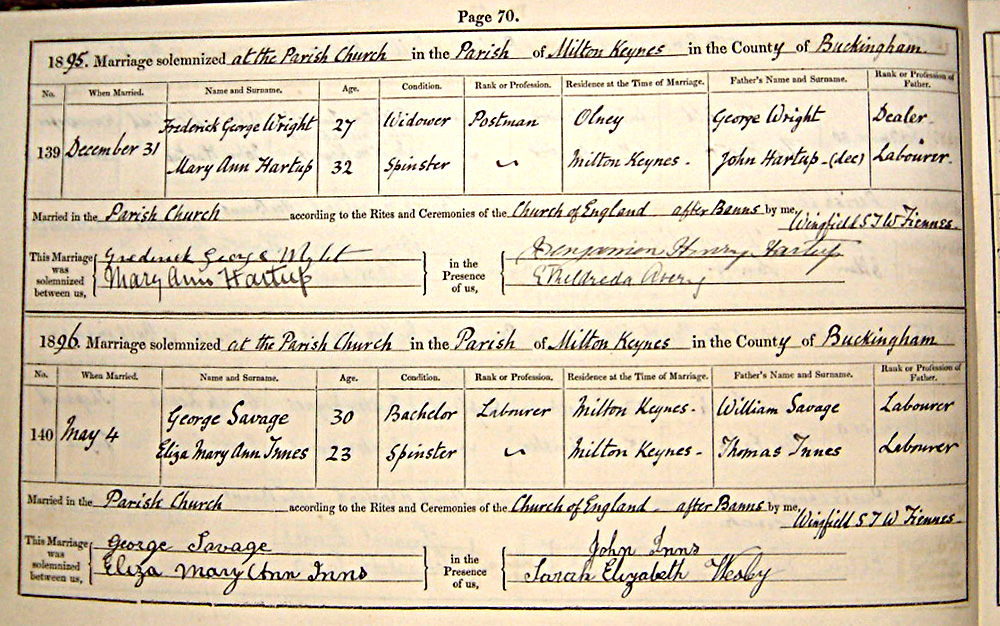 Page 70.
1895. Marriage solemnized at the Parish Church in the Parish of Milton Keynes in the County of Buckingham
No. When Married. Name and Surname. Age. Condition. Rank or Profession. Residence at the Time of Marriage. Father's Name and Surname. Rank or Profession of Father.
139 December 31 Frederick George Wright 27 Widower Postman Olney George Wright Dealer
Mary Ann Hartup 32 Spinster Milton Keynes. John Hartup (dec) Labourer
Married in the Parish Church according to the Rites and Ceremonies of the Church of England after Banns by me,
Wingfield S T W Fiennes.
This Marriage was solemnized between us, Frederick George Wright in the Presence of us, Benjamin Henry Hartup
Mary Ann Hartup Etheldreda Avery
1896. Marriage solemnized at the Parish Church in the Parish of Milton Keynes in the County of Buckingham
No. When Married. Name and Surname. Age. Condition. Rank or Profession. Residence at the Time of Marriage. Father's Name and Surname. Rank or Profession of Father.
140 May 4 George Savage 30 Bachelor Labourer Milton Keynes. William Savage Labourer
Eliza Mary Ann Innes 23 Spinster Milton Keynes Thomas Innes Labourer
Married in the Parish Church according to the Rites and Ceremonies of the Church of England after Banns by me,
Wingfield S T W Fiennes.
This Marriage was solemnized between us, George Savage in the Presence of us, John Inns
Eliza Mary Ann Inns Sarah Elizabeth Wesby